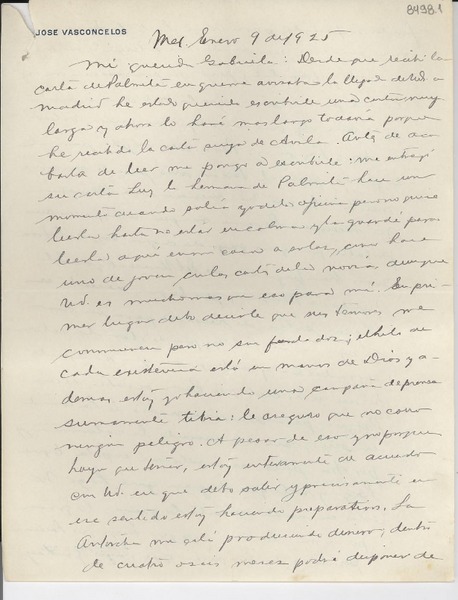 8498.1
JOSE VASCONCELOS
Mex. Enero 9 de 1925
Mi querida Gabriela: Desde que recibí la
carta de Palmita en que me avisaba la llegada de Ud. a
Madrid he estado queriendo escribirle una carta muy
larga y ahora lo haré mas largo todavia porque
he recibido la carta suya de Avila. Antes de aca-
barla de leer me pongo a escribirle: me entregó
su carta Luz la hermana de Palmita hace un
momento cuando salía yo de la oficina pero no quise
leerla hasta no estar en calma y la guardé para
leerla aquí en mi casa a solas, como hace
uno de joven con las cartas de la novia, aunque
Ud. es mucho mas que eso para mi. En pri-
mer lugar debo decirle que sus temores me
conmueven pero no son fundados; el hilo de
cada existencia está en manos de Dios y a-
demas estoy yo haciendo una campaña de prensa
sumamente tibia: le aseguro que no corro
ningún peligro. A pesar de eso y no porque
haya que temer, estoy enteramente de acuerdo
con Ud. en que debo salir y precisamente en
ese sentido estoy haciendo preparativos. La
Antorcha me está produciendo dinero; dentro
de cuatro o seis meses podré disponer de